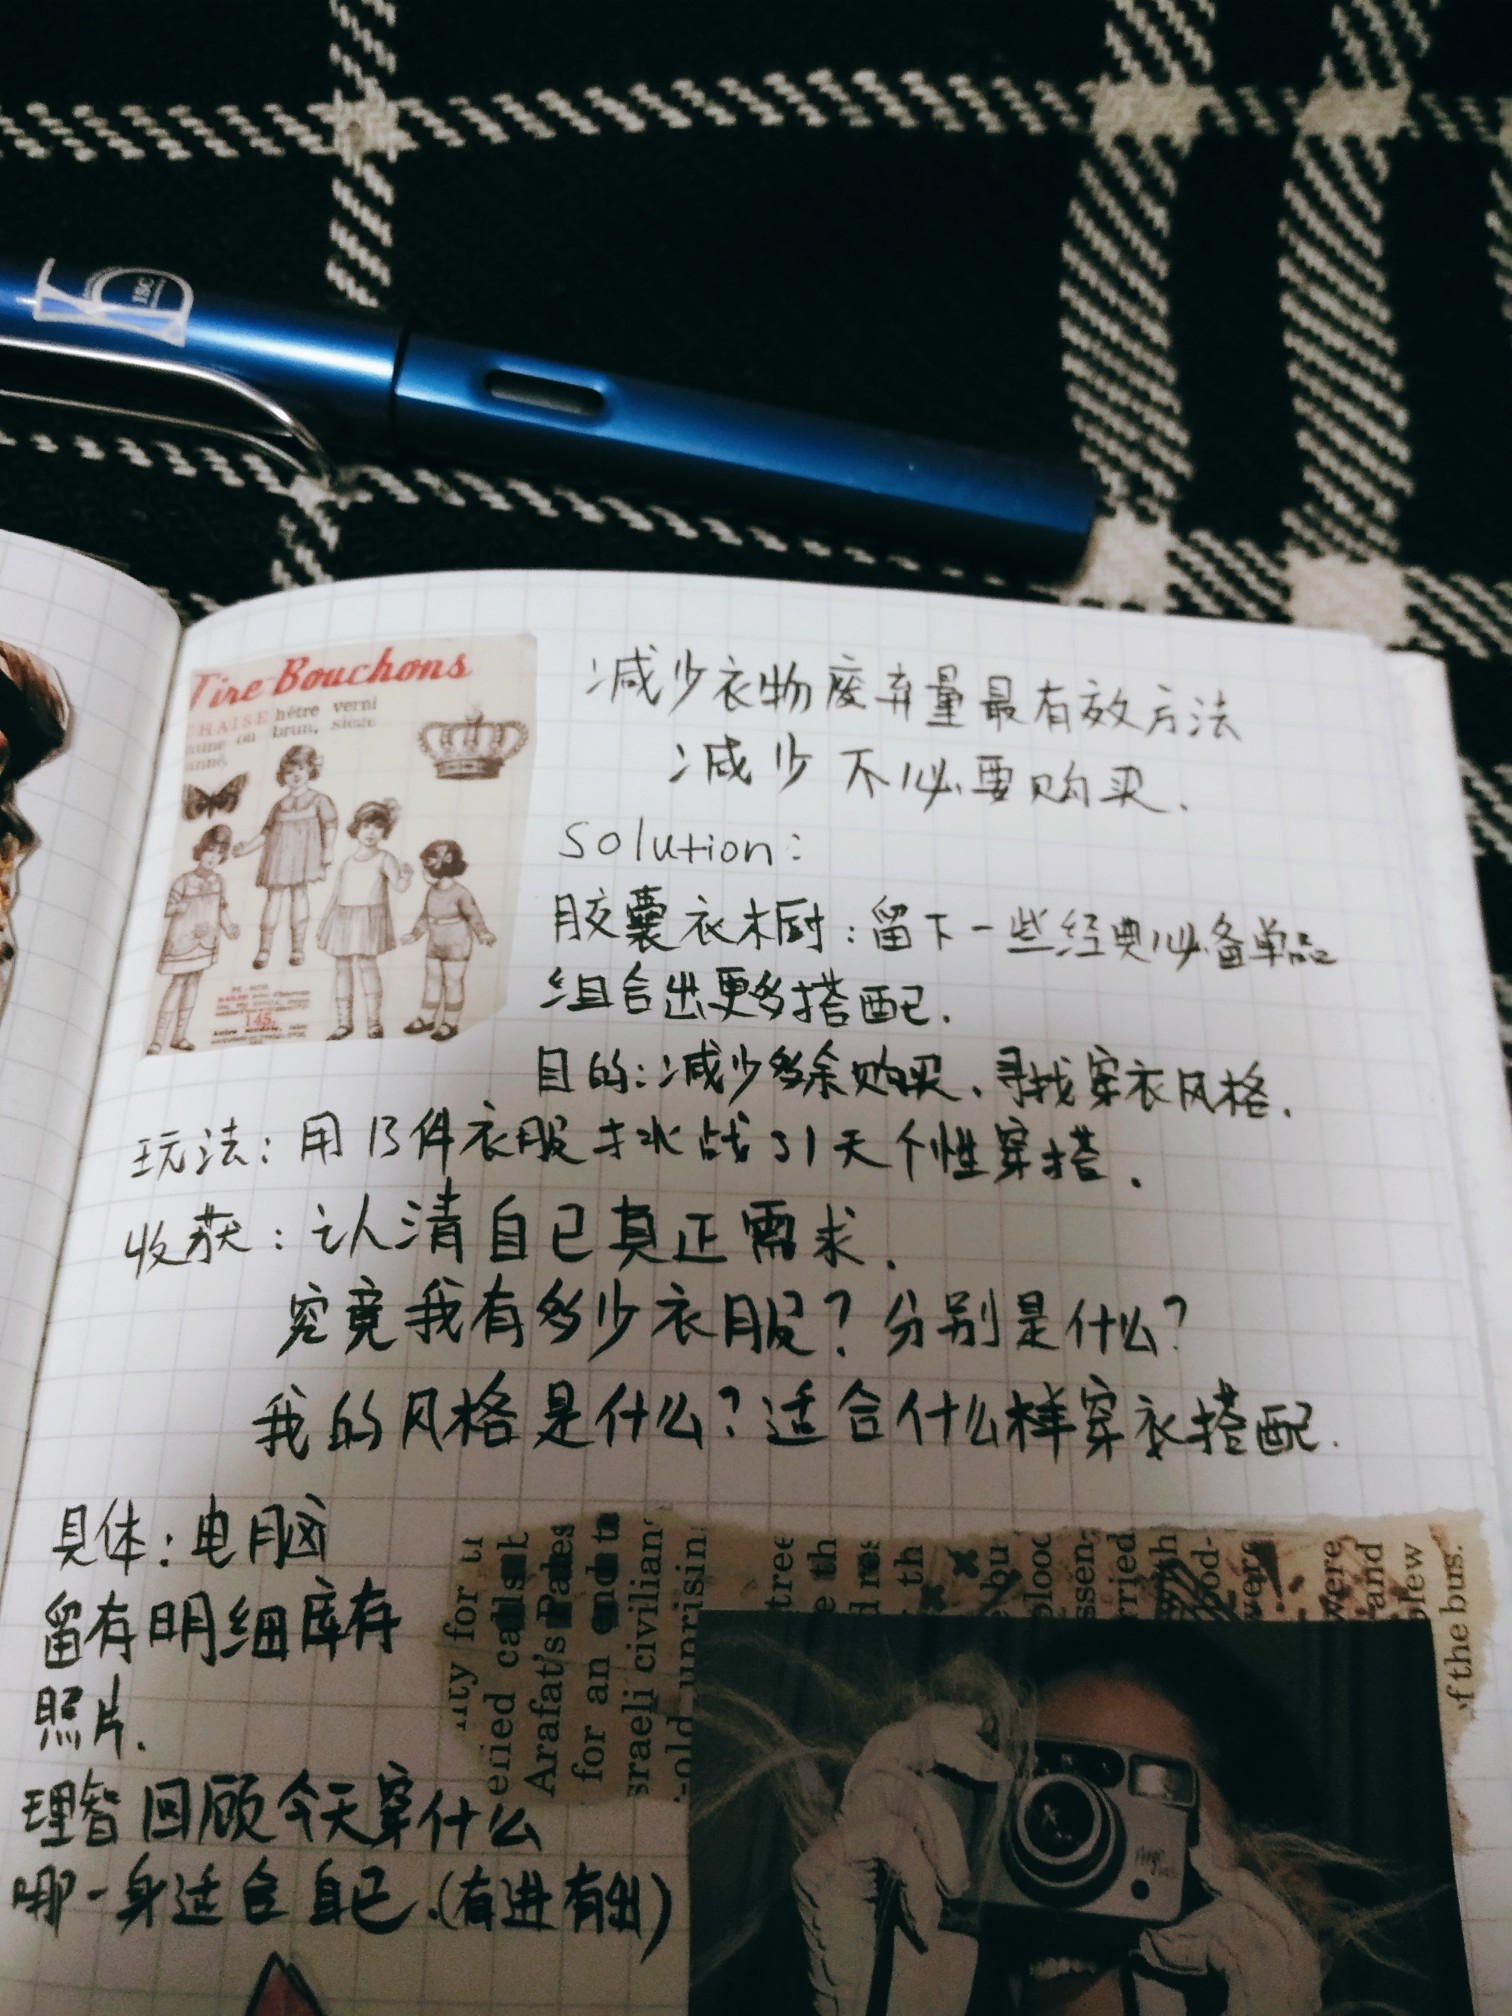 ISC
Tire-Bouchons
CHAISE hêtre verni
ou brun, siège
减少衣物废弃量最有效方法
减少不必要购买.
solution:
胶囊衣橱:留下一些经典必备单品
组合出更多搭配.
目的:减少多余购买、寻找穿衣风格.
145.
玩法:用13件衣服挑战31天个性穿搭.
收获:认清自己真正需求.
究竟我有多少衣服?分别是什么?
我的风格是什么?适合什么样穿衣搭配.
具体:电脑
留有明细库存
照片.
理智回顾今天穿什么
哪一身适合自己.(有进有出)
nity for
enied calls
Arafat's
for an end
sraeli civilian
-old uprisin
tree
e th
th
bu
blood
ssen-
rried
with
ood-
were
were
and
blew
f the bus.